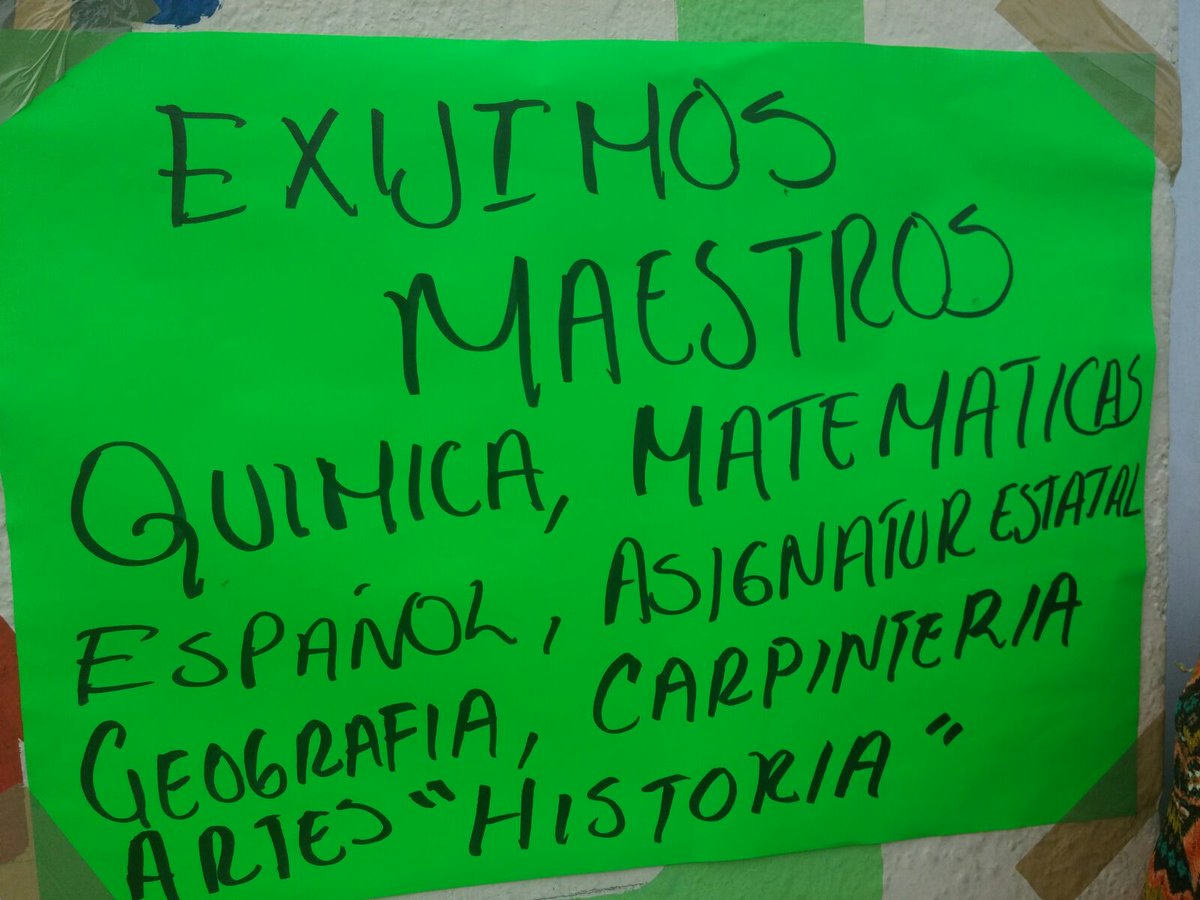 EXIJIMOS
MAESTROS
QUIMICA, MATEMATICAS
ESPAÑOL, ASIGNATUR ESTATAL
GEOGRAFIA, CARPINTERIA
ARTES "HISTORIA"